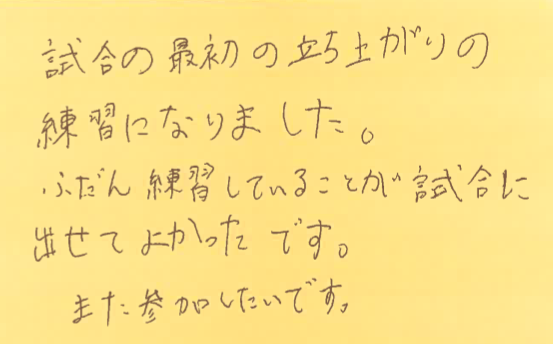 試合の最初の立ち上がりの
練習になりました。
ふだん練習していることが試合に
出せてよかったです。
また参加したいです。